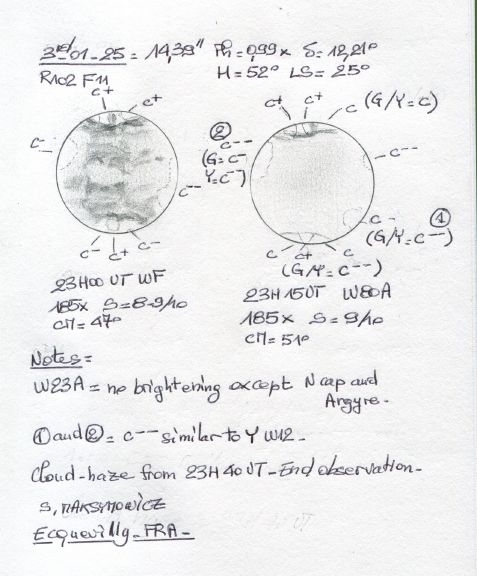 3rd-01-25 = 14,39" Ph = 0,99 x δ = 12,21°
R102 F11 H = 52° LS = 25°
c+ c+
c-
c--
c- c+ c-
23H00 UT WF
185x S = 8-9/10
CM = 47°
c+ c+ c (G/Y = c)
②
c--
(G = c-
Y = c-)
c--
c- ①
(G/Y = c--)
c c+ c
(G/Y = c--)
23H15UT W80A
185x S = 9/10
CM = 51°
Notes =
W23A = no brightening except N cap and
Argyre.
① and ② = c-- similar to Y W12.
Cloud-haze from 23H40 UT - End observation -
S, MAKSYMOWICZ
Ecquevilly - FRA -